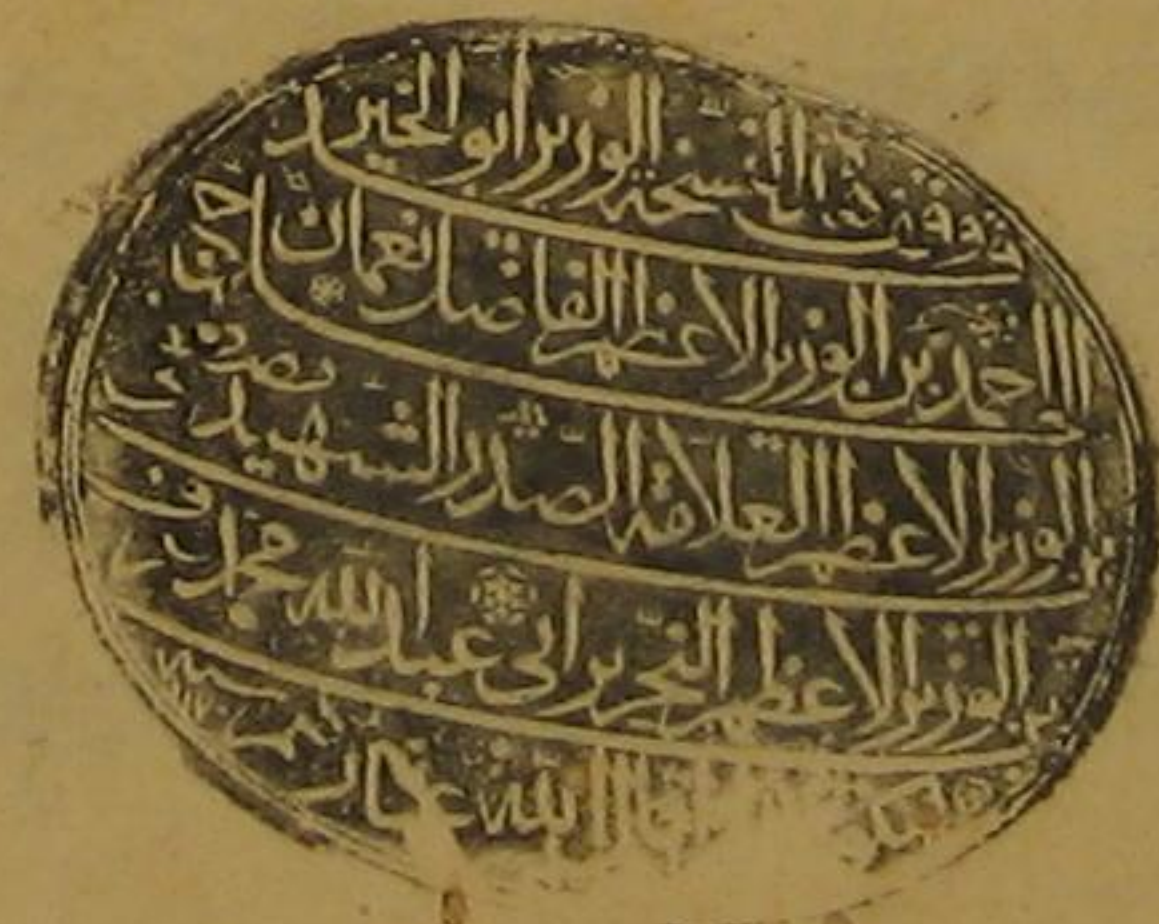 قد وقف هذه النسخة الوزير ابو الخير
احمد بن الوزير الاعظم الفاضل نعمان
بن الوزير الاعظم العلامة الصدر الشهيد مصطفى
بن الوزير الاعظم النحرير ابى عبد الله محمد
الله